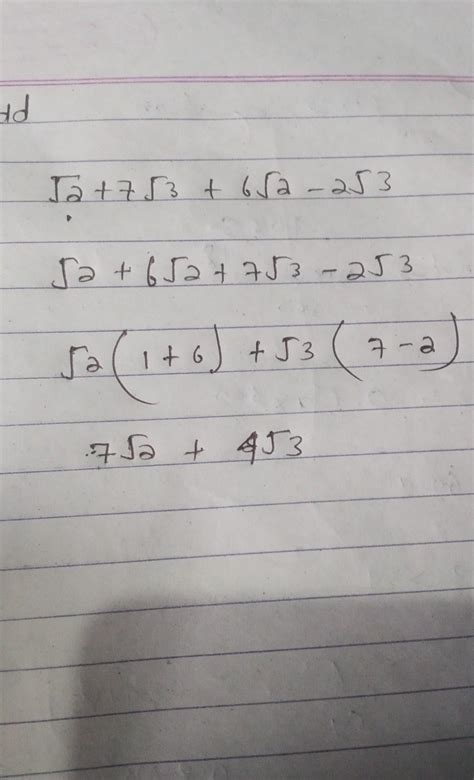 √2 + 7√3 + 6√2 - 2√3
√2 + 6√2 + 7√3 - 2√3
√2 (1 + 6) + √3 (7 - 2)
7√2 + 4√3